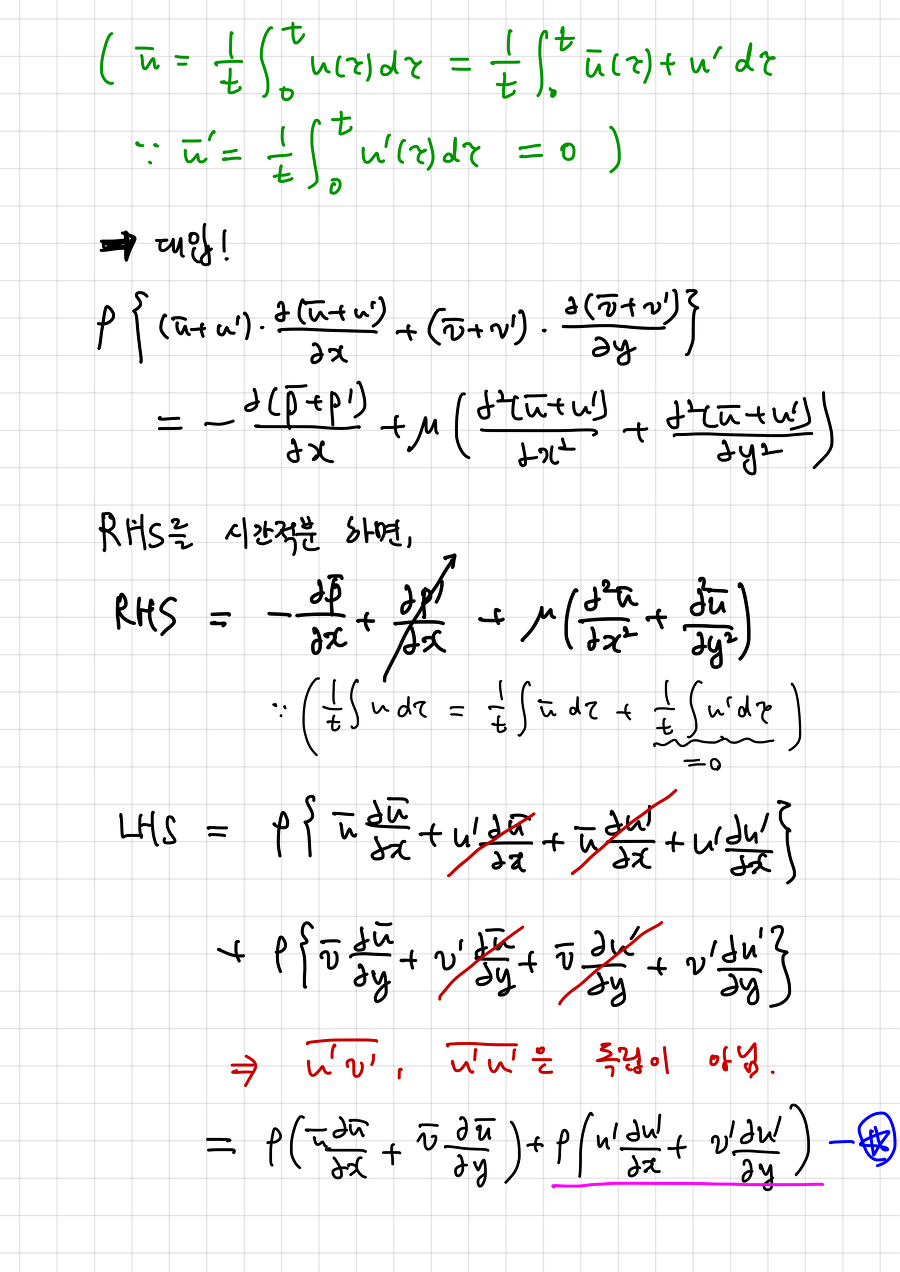 ( ū = 1/t ∫₀ᵗ u(τ)dτ = 1/t ∫₀ᵗ ū(τ)+u' dτ
∵ ū' = 1/t ∫₀ᵗ u'(τ)dτ = 0 )
➡ 대입!
ρ { (ū+u')·∂(ū+u')/∂x + (v̄+v')·∂(v̄+v')/∂y }
= -∂(p̄+p')/∂x + μ( ∂²(ū+u')/∂x² + ∂²(ū+u')/∂y² )
RHS를 시간적분 하면,
RHS = -∂p̄/∂x + ∂p'/∂x + μ( ∂²ū/∂x² + ∂²ū/∂y² )
∵ ( 1/t ∫ u dτ = 1/t ∫ ū dτ + 1/t ∫ u' dτ )
=0
LHS = ρ{ ū ∂ū/∂x + u' ∂ū/∂x + ū ∂u'/∂x + u' ∂u'/∂x }
+ ρ{ v̄ ∂ū/∂y + v' ∂ū/∂y + v̄ ∂u'/∂y + v' ∂u'/∂y }
⇒ u'v', u'u' 은 독립이 아님.
= ρ( ū ∂ū/∂x + v̄ ∂ū/∂y ) + ρ( u' ∂u'/∂x + v' ∂u'/∂y ) - ⍟